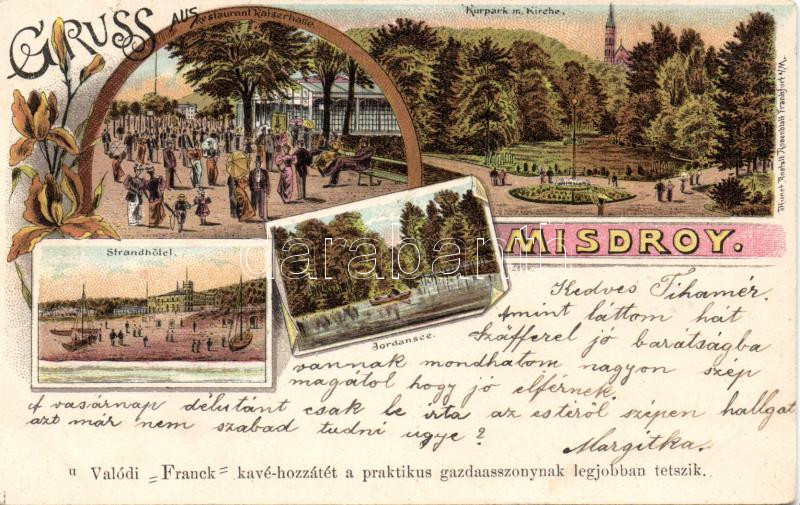 GRUSS AUS
Restaurant Kaiserhalle
Kurpark m. Kirche.
Kunst-Anstalt Rosenblatt Frankfurt a/M.
MISDROY.
Strandhôtel.
Jordansee.
darabanth
Kedves Tihamér.
Amint láttom hat
Száfferel jó barátságba
vannak mondhatom nagyon szép
magától hogy jó elférnek.
A vasárnap délutánt csak le irta az estéről szépen hallgat
azt már nem szabad tudni ugye?
Margitka.
u Valódi „Franck" kavé-hozzátét a praktikus gazdaasszonynak legjobban tetszik.